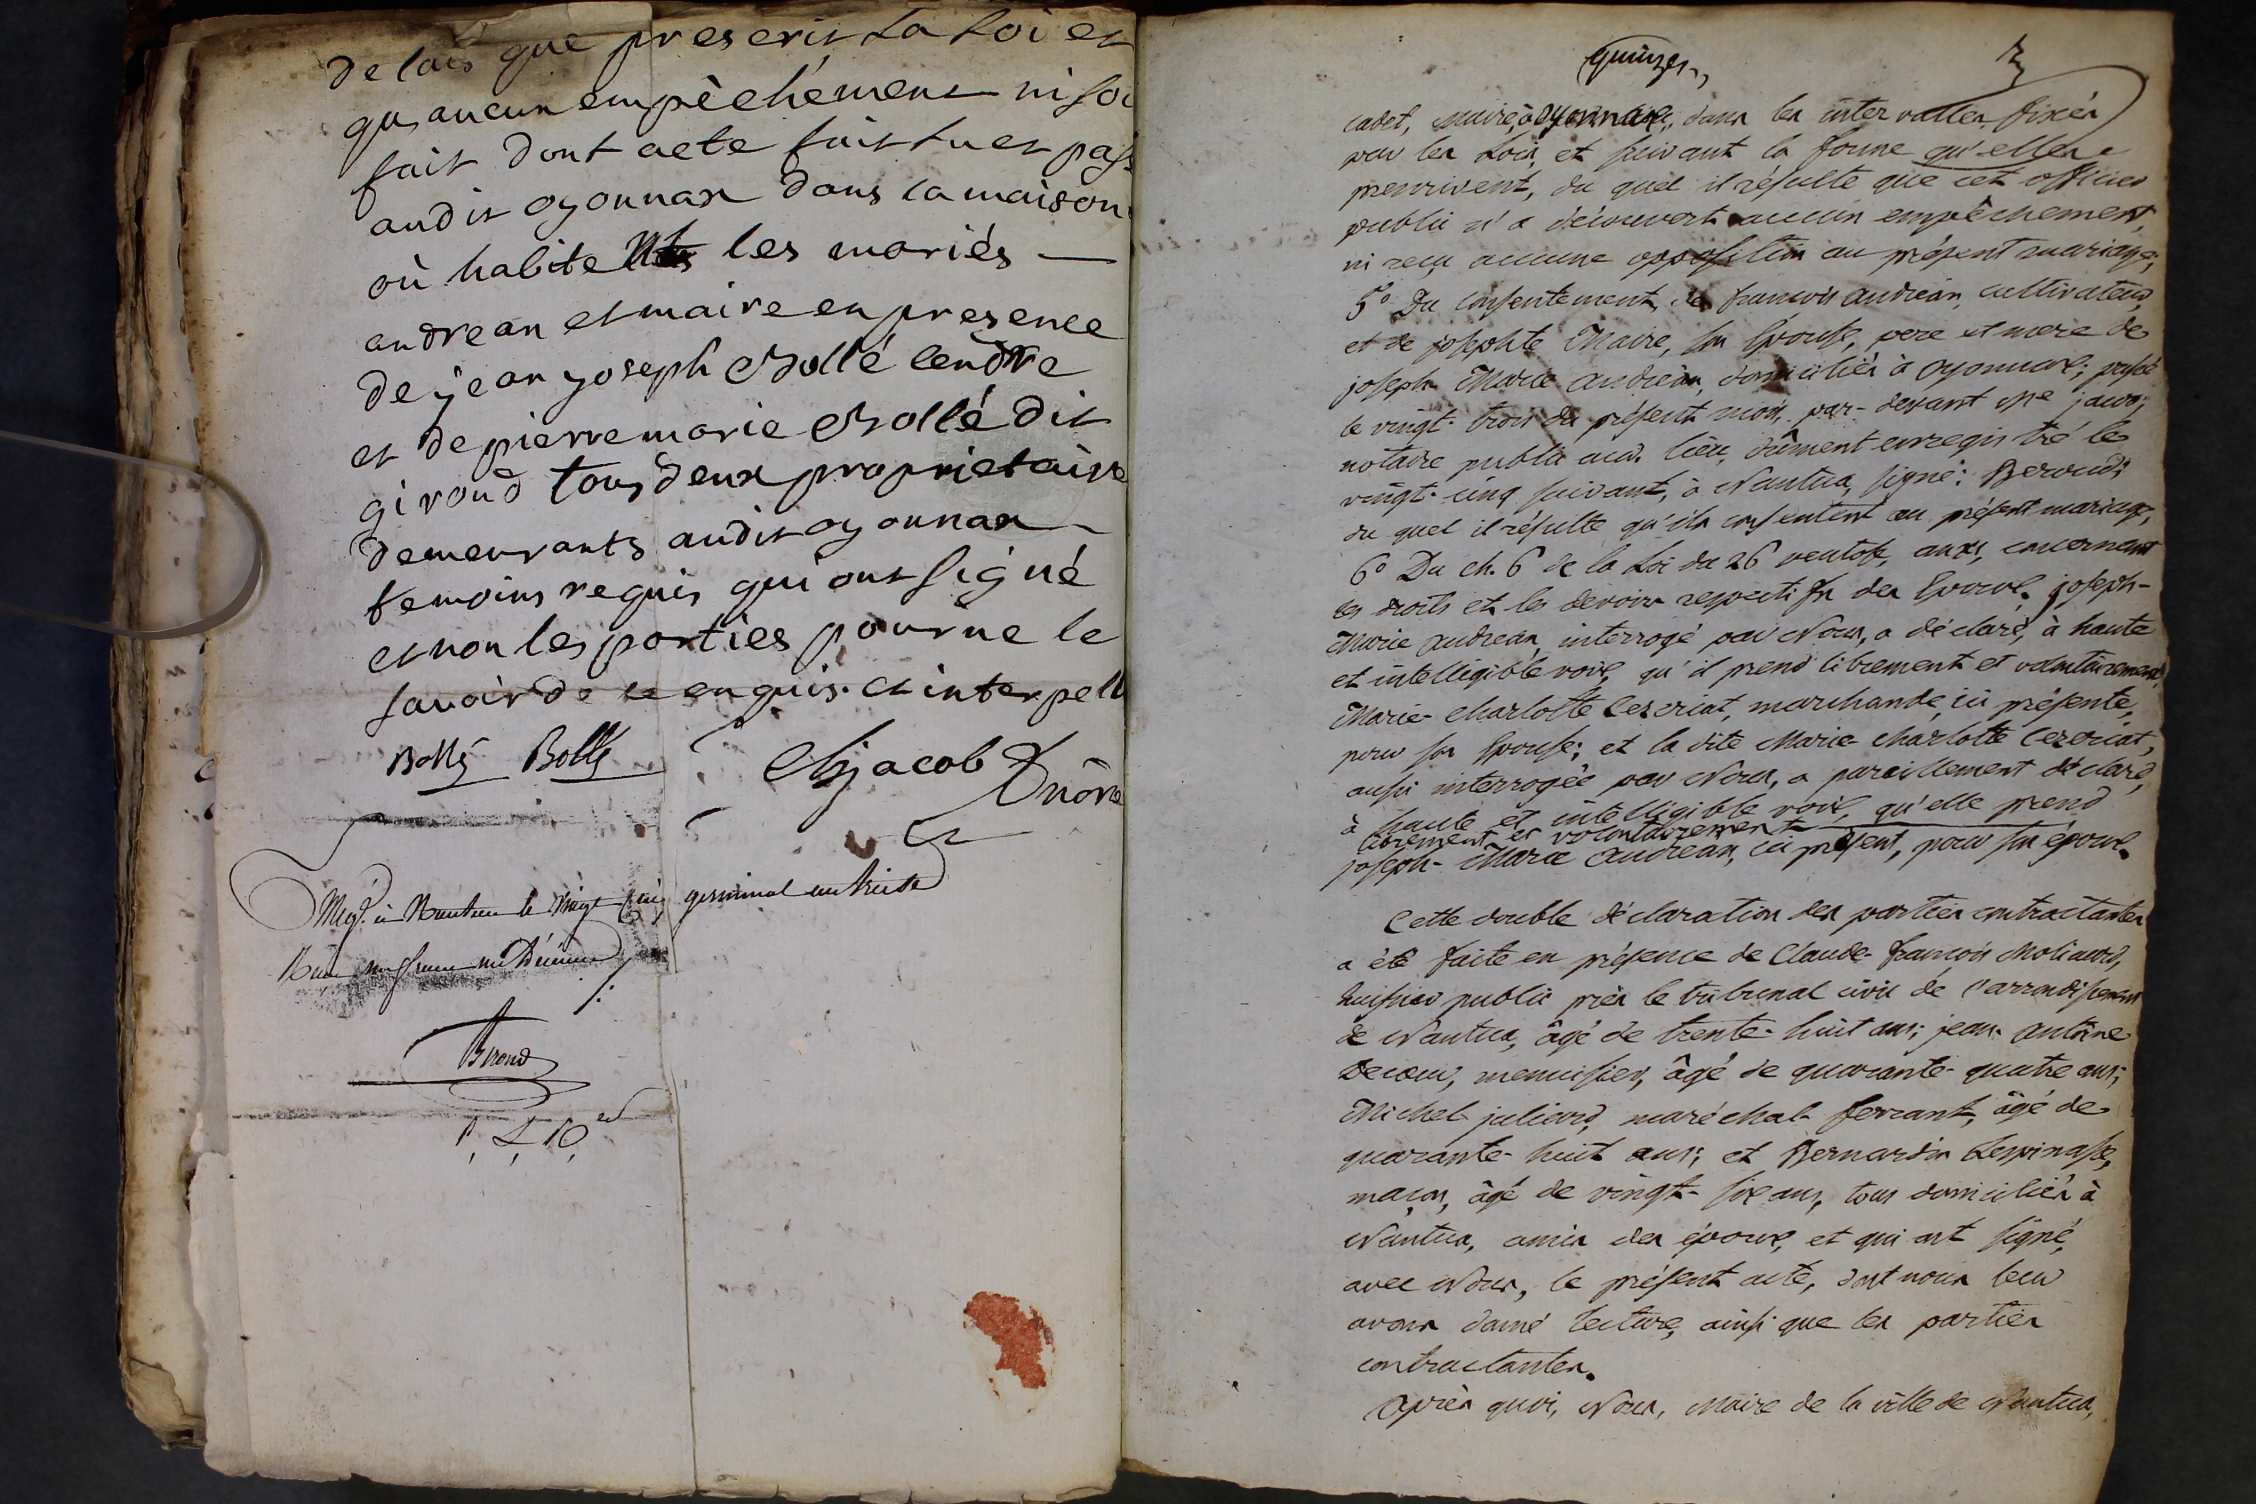 delais que prescrit La Loi et
qu aucun empèchément ni soi
fait dont acte fait lu et pass
audit oyonnax dans la maison
où habite les mariés —
andrean et maire en presence
de jean joseph Bollé lendre
et de pierre marie Bollé dit
girond tous deux proprietaire
demeurants audit oyonnax
temoins requis qui ont signé
et non les parties pour ne le
savoir de ce enquis. et interpell
Bollé Bollé Jacob
à Nantua le vingt cinq germinal an treize
Reçu un franc un Décime
Beroud
quinze
cadet, maire, à Oyonnax, dans les intervalles fixés
par les Lois, et suivant la forme qu'elles
prescrivent, du quel il résulte que cet officier
public n'a découvert aucun empêchement,
ni reçu aucune opposition au présent mariage;
5.° Du consentement de françois andréan, cultivateur,
et de josephte Maire, son Epouse, pere et mere de
joseph Marie andréan, domiciliés à Oyonnax; passé
le vingt-trois du présent mois, par-devant Me jacob,
notaire public aud. lieu, dûment enregistré le
vingt-cinq suivant, à Nantua, signé: Beroud;
du quel il résulte qu'ils consentent au présent mariage;
6° Du ch. 6 de la Loi du 26 ventose, an XI, concernant
les droits et les devoirs respectifs des Epoux. joseph-
Marie andréan, interrogé par Nous, a déclaré, à haute
et intelligible voix, qu'il prend librement et volontairement,
Marie-Charlotte Cezeriat, marchande, ici présente,
pour son Epouse; et la dite Marie-Charlotte Cezeriat,
aussi interrogée par Nous, a pareillement déclaré,
à haute et intelligible voix, qu'elle prend
librement et volontairement
joseph-Marie andréan, ici présent, pour son époux.
Cette double déclaration des parties contractantes
a été faite en présence de Claude-françois Moliard,
huissier public près le tribunal civil de l'arrondissement
de Nantua, âgé de trente-huit ans; jean-antoine
Decoeur, menuisier, âgé de quarante-quatre ans;
Michel juliard, maréchal-ferrant, âgé de
quarante-huit ans; et Bernardin Lespinasse,
maçon, âgé de vingt-six ans, tous domiciliés à
Nantua, amis des époux, et qui ont signé,
avec Nous, le présent acte, dont nous leur
avons donné lecture, ainsi que les parties
contractantes.
Après quoi, Nous, Maire de la ville de Nantua,